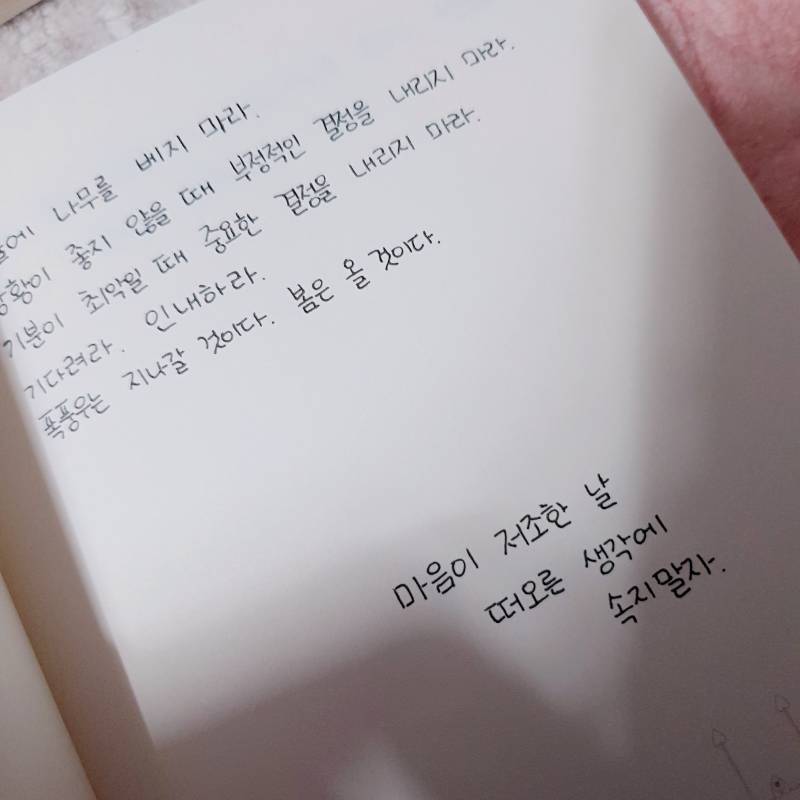 나무를 베지 마라.
상황이 좋지 않을 때 부정적인 결정을 내리지 마라.
기분이 최악일 때 중요한 결정을 내리지 마라.
기다려라. 인내하라.
폭풍우는 지나갈 것이다. 봄은 올 것이다.
마음이 저조한 날
떠오른 생각에
속지말자.